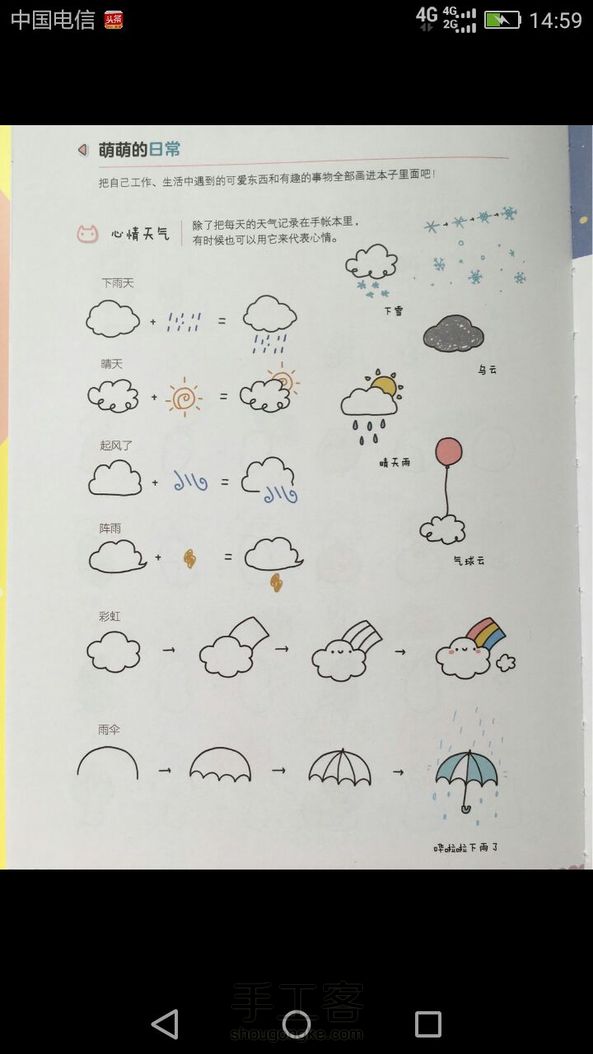 中国电信 头条 4G 4G 2G 14:59
萌萌的日常
把自己工作、生活中遇到的可爱东西和有趣的事物全部画进本子里面吧！
心情天气
除了把每天的天气记录在手帐本里，
有时候也可以用它来代表心情。
下雨天
下雪
乌云
晴天
晴天雨
起风了
气球云
阵雨
彩虹
雨伞
哗啦啦下雨了
手工客
shougongke.com